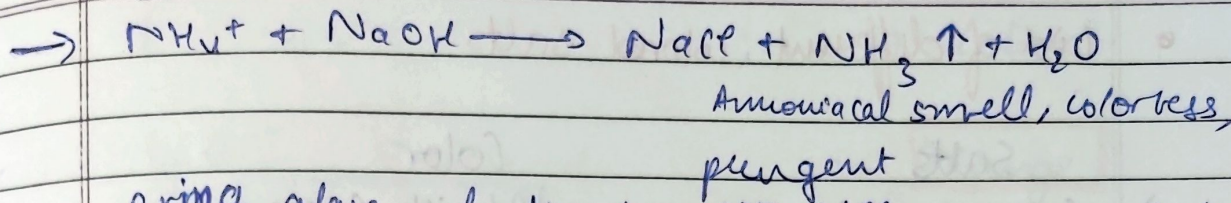 → NH₄⁺ + NaOH ⟶ NaCl + NH₃ ↑ + H₂O
Ammoniacal smell, colorless,
pungent